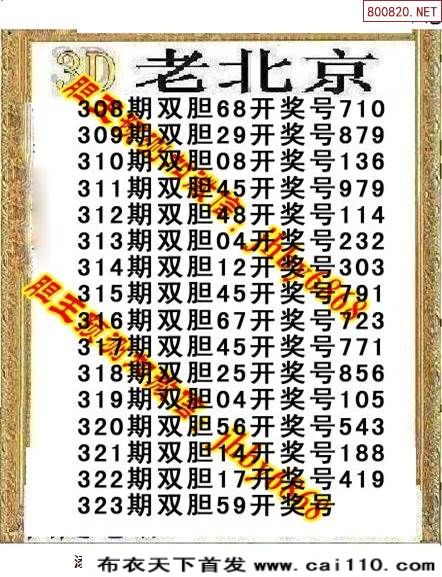 800820.NET
3D 老北京
308期双胆68开奖号710
309期双胆29开奖号879
310期双胆08开奖号136
311期双胆45开奖号979
312期双胆48开奖号114
313期双胆04开奖号232
314期双胆12开奖号303
315期双胆45开奖号791
316期双胆67开奖号723
317期双胆45开奖号771
318期双胆25开奖号856
319期双胆04开奖号105
320期双胆56开奖号543
321期双胆14开奖号188
322期双胆17开奖号419
323期双胆59开奖号
布衣天下首发 www.cai110.com